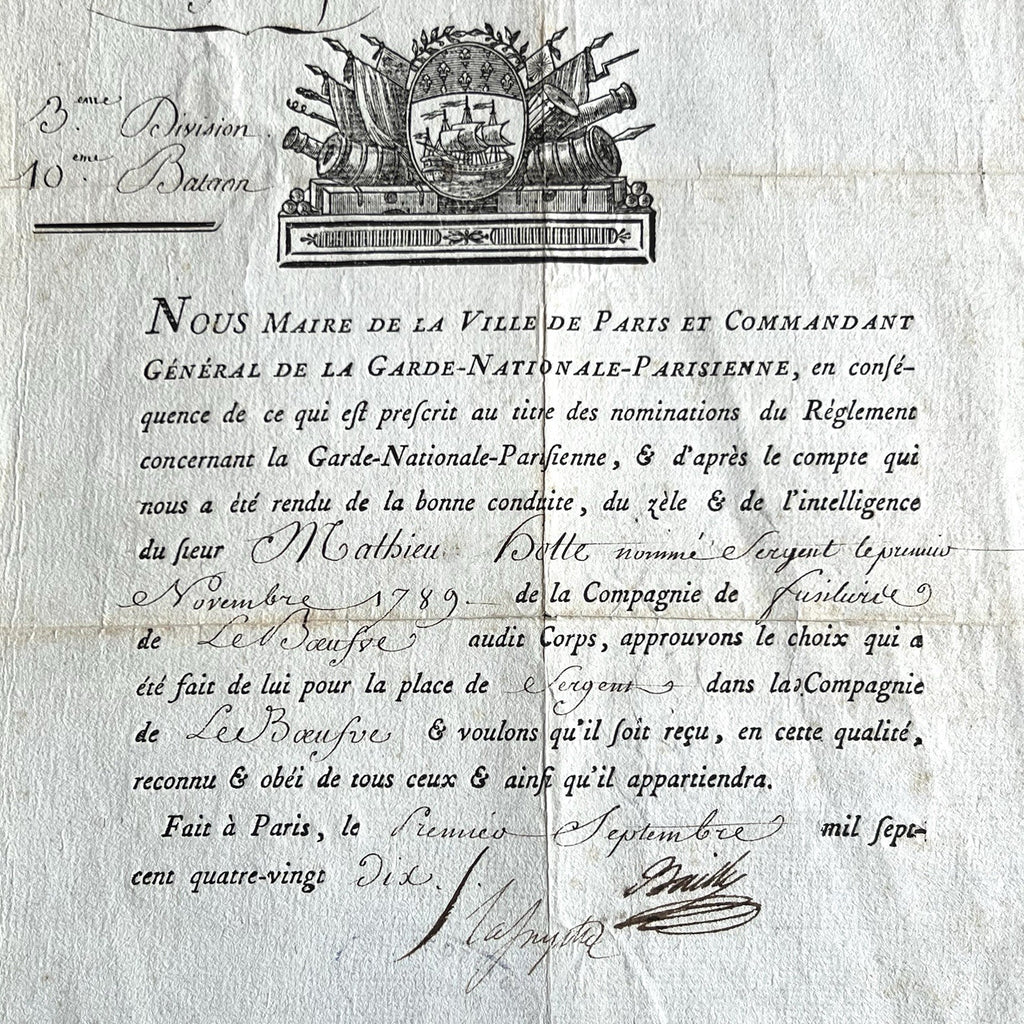 3.eme Division
10.eme Bataon
NOUS MAIRE DE LA VILLE DE PARIS ET COMMANDANT
GÉNÉRAL DE LA GARDE-NATIONALE-PARISIENNE, en conſé-
quence de ce qui eſt preſcrit au titre des nominations du Réglement
concernant la Garde-Nationale-Pariſienne, & d'après le compte qui
nous a été rendu de la bonne conduite, du zèle & de l'intelligence
du ſieur Mathieu Hotte nommé Sergent le premier
Novembre 1789 de la Compagnie de
de Le Bœufve audit Corps, approuvons le choix qui a
été fait de lui pour la place de Sergent dans la Compagnie
de Le Bœufve & voulons qu'il ſoit reçu, en cette qualité,
reconnu & obéi de tous ceux & ainſi qu'il appartiendra.
Fait à Paris, le Premier Septembre mil ſept-
cent quatre-vingt Dix.
Bailly
Lafayette